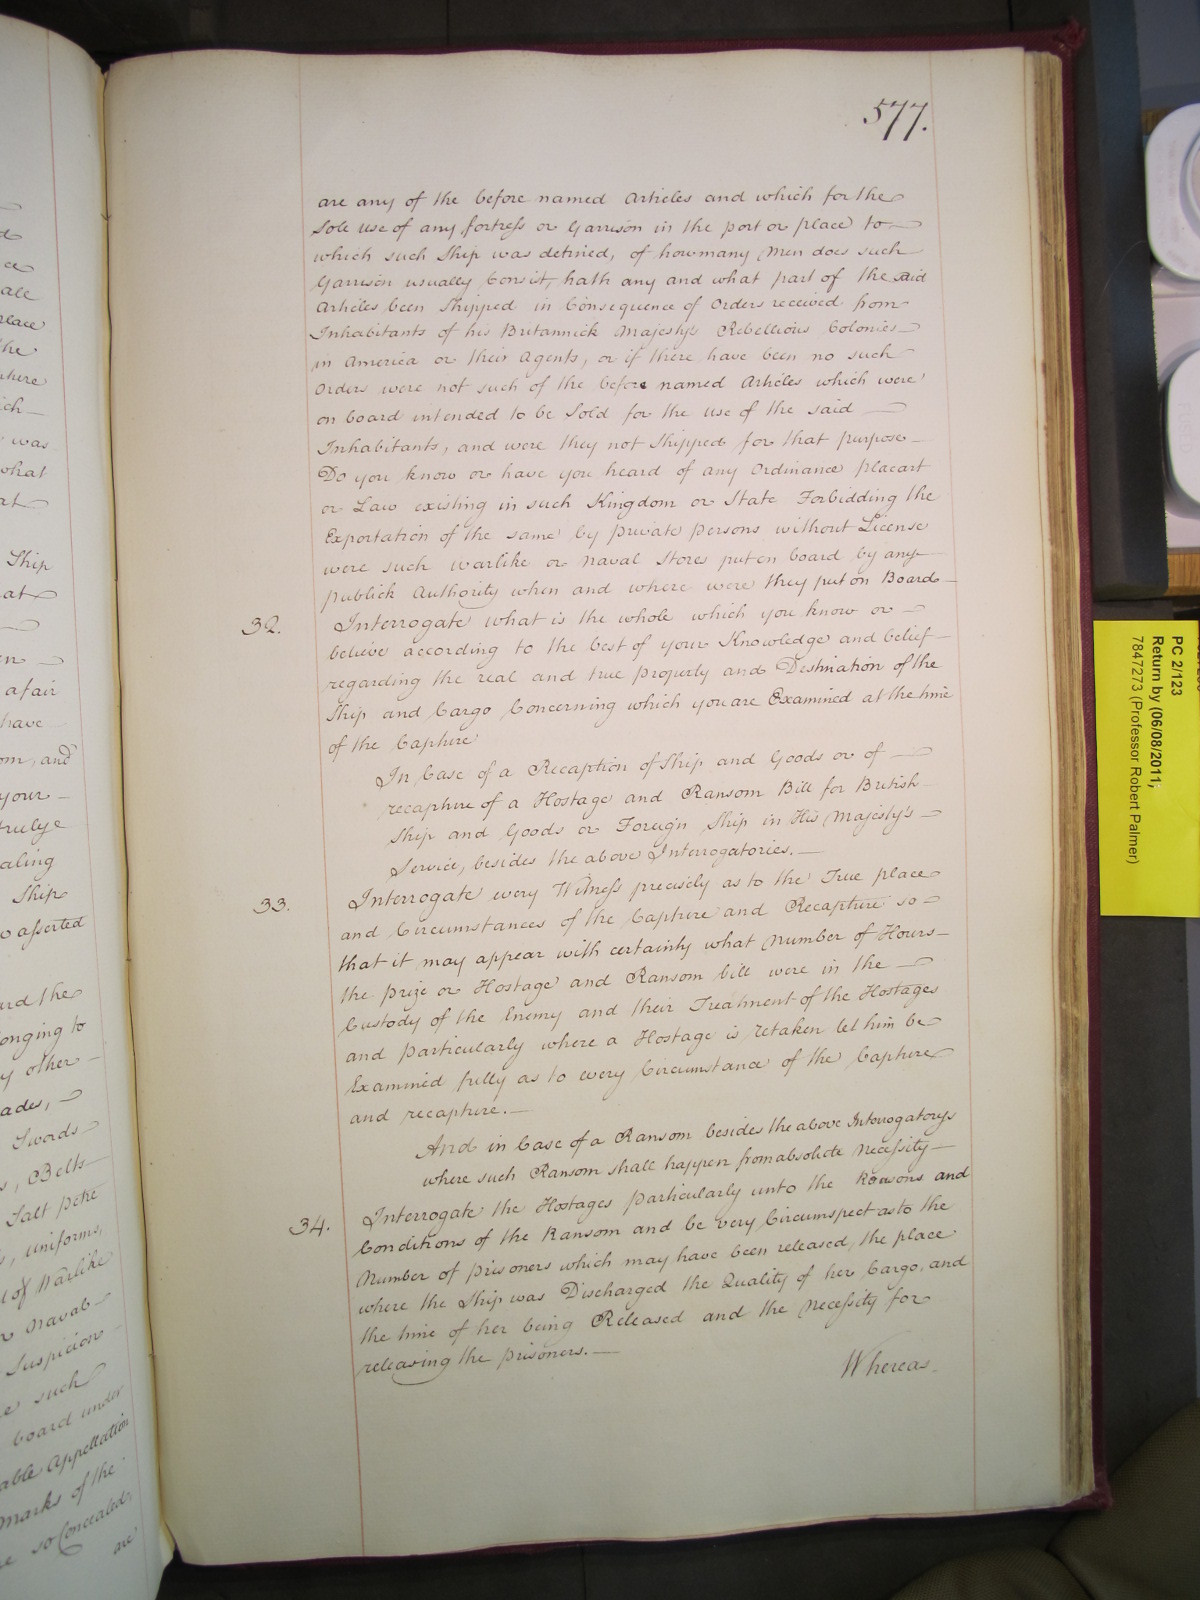 577.
are any of the before named Articles and which for the
Sole use of any fortress or Garrison in the port or place to
which such Ship was detined, of how many Men does such
Garrison usually Consit, hath any and what part of the said
Articles been Shipped in Consequence of Orders received from
Inhabitants of his Britannick Majestys Rebellious Colonies
in America or their Agents, or if there have been no such
Orders were not such of the before named Articles which were
on board intended to be Sold for the use of the said
Inhabitants, and were they not Shipped for that purpose
Do you know or have you heard of any Ordinance placart
or Law existing in such Kingdom or State Forbidding the
Exportation of the same by private persons without License
were such warlike or naval Stores put on board by any
publick Authority when and where were they put on Board
32. Interrogate what is the whole which you know or
believe according to the best of your Knowledge and belief
regarding the real and true property and Destination of the
Ship and Cargo Concerning which you are Examined at the time
of the Capture
In Case of a Recaption of Ship and Goods or of
recapture of a Hostage and Ransom Bill for British
Ship and Goods or Foreign Ship in His Majesty's
Service, besides the above Interrogatories.
33. Interrogate every Witness precisely as to the True place
and Circumstances of the Capture and Recapture so
that it may appear with certainty what number of Hours
the prize or Hostage and Ransom bill were in the
Custody of the Enemy and their Treatment of the Hostages
and particularly where a Hostage is retaken let him be
Examined fully as to every Circumstance of the Capture
and recapture.
And in Case of a Ransom besides the above Interrogatorys
where such Ransom shall happen from absolute necessity
34. Interrogate the Hostages particularly unto the Reasons and
Conditions of the Ransom and be very Circumspect as to the
Number of prisoners which may have been released, the place
where the Ship was Discharged the Quality of her Cargo, and
the time of her being Released and the necessity for
releasing the prisoners.
Whereas
ale
place
the
where
ich
was
what
at
Ship
at
en
a fair
have
om, and
your
truly
aling
Ship
so asserted
ard the
onging to
y other
ades,
Swords
s, Belts
Salt petre
s, uniforms,
l of Warlike
r naval
Suspicion
e such
board under
able Appellation
marks of the
e so Concealed,
are
PC 2/123
Return by (06/08/2011;
7847273 (Professor Robert Palmer)